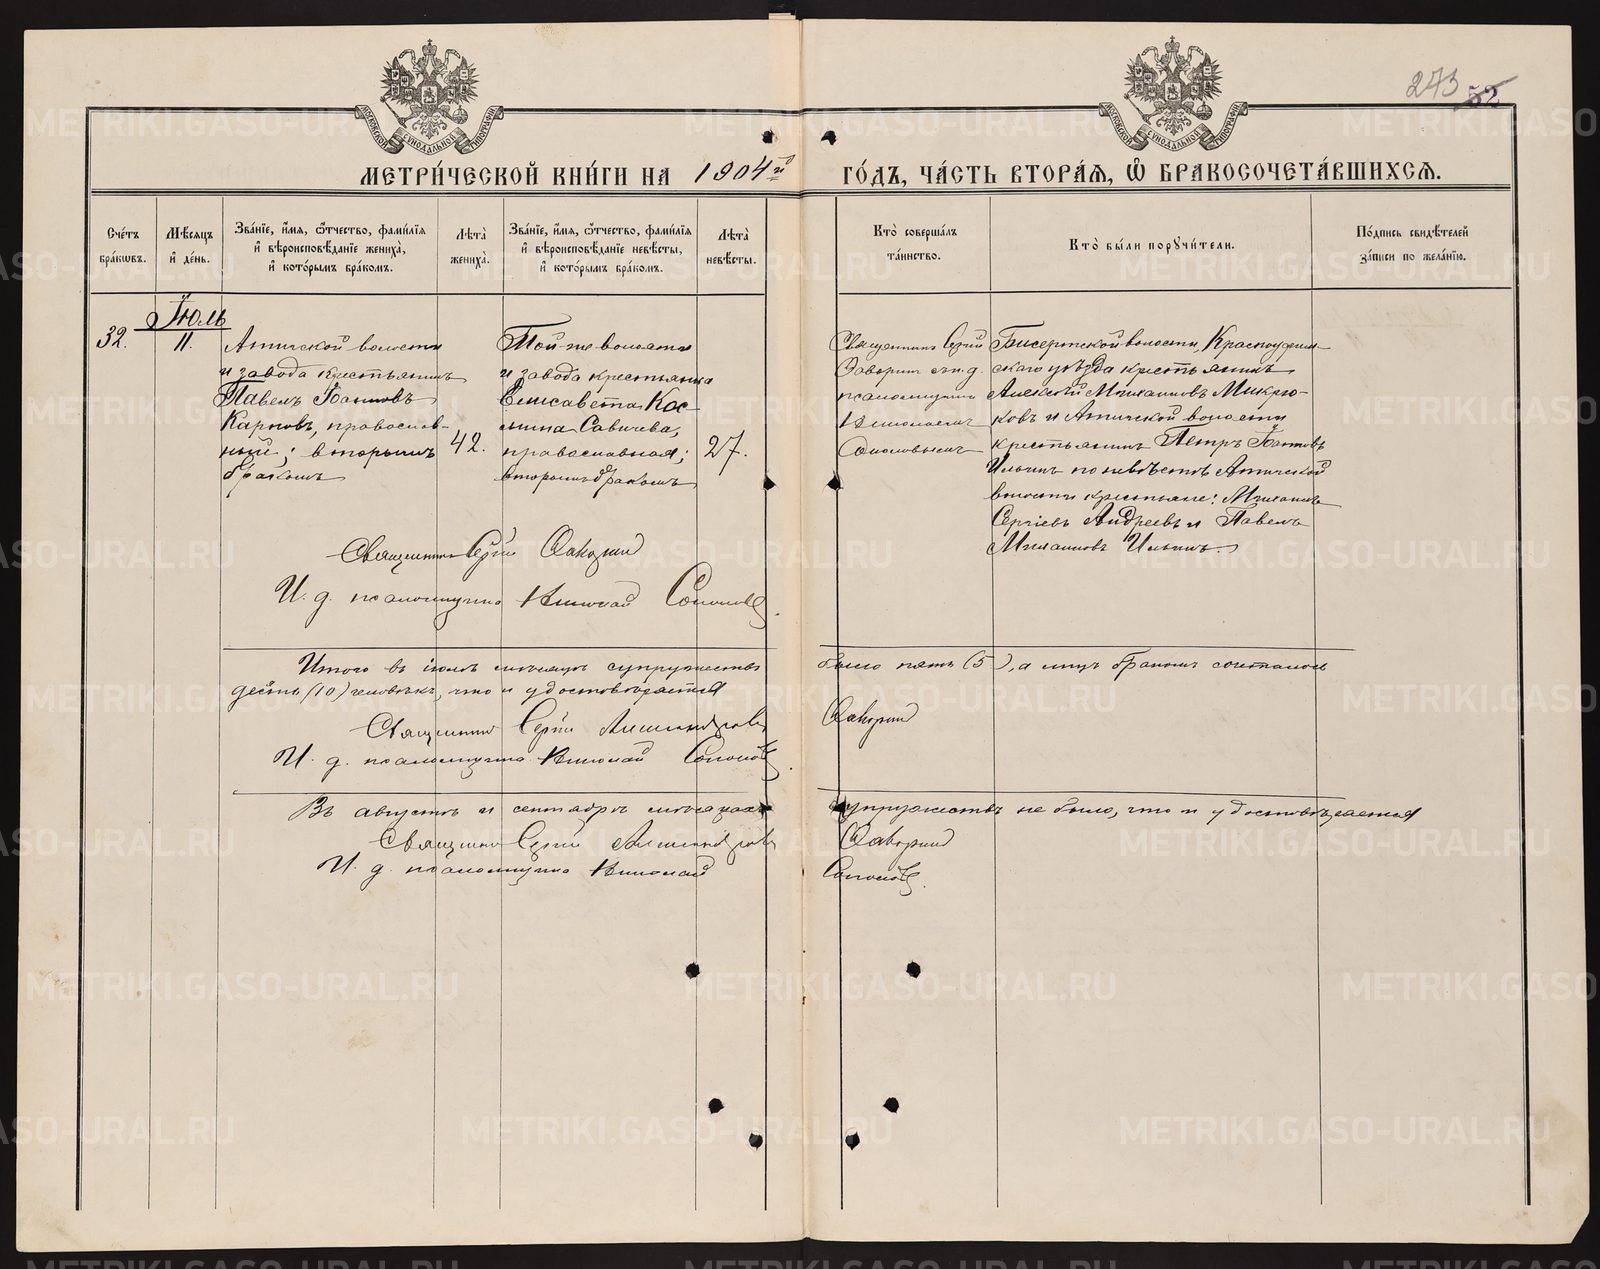 273 52
МЕТРИ́ЧЕСКОЙ КНИ́ГИ НА 1904й ГО́ДЪ, ЧА́СТЬ ВТОРА́Я, Ѡ БРАКОСОЧЕТА́ВШИХСЯ.
Сче́тъ бра́кѡвъ.
Мѣ́сяцъ и҆ де́нь.
Зва́нїе, и҆́мя, ѻ҆́тчество, фами́лїя и҆ вѣроисповѣ́данїе жениха̀, и҆ кото́рымъ бра́комъ.
Лѣта̀ жениха̀.
Зва́нїе, и҆́мя, ѻ҆́тчество, фами́лїя и҆ вѣроисповѣ́данїе невѣ́сты, и҆ кото́рымъ бра́комъ.
Лѣта̀ невѣ́сты.
Кто̀ соверша́лъ та́инство.
Кто̀ бы́ли порꙋчи́тели.
По́дпись свидѣ́телей за́писи по жела́нїю.
Іюль
32.
11.
Атигской волости
и завода крестьянинъ
Павелъ Іоанновъ
Карповъ, православ-
ный; вторымъ
бракомъ
42.
Той-же волости
и завода крестьянка
Елисавета Кос-
мина Савичева,
православная;
вторымъ бракомъ
27.
Священникъ Сергій
и и. д.
псаломщика
Николаемъ
Соколовымъ
Бисертской волости, Красноуфим-
скаго уѣзда крестьянинъ
Алексѣй Михаиловъ Микрю-
ковъ и Атигской волости
крестьянинъ Петръ Іоанновъ
Ильинъ по невѣстѣ Атигской
волости крестьяне: Михаилъ
Сергіевъ Андреевъ и Павелъ
Михаиловъ Ильинъ.
Священникъ Сергій
И. д. псаломщика Николай Соколовъ.
Итого въ іюлѣ мѣсяцѣ супружествъ было пять (5), а лицъ бракомъ сочеталось
десять (10) человѣкъ, что и удостовѣряется
Священникъ Сергій Александровъ
И. д. псаломщика Николай Соколовъ.
Въ августѣ и сентябрѣ мѣсяцахъ супружествъ не было, что и удостовѣряется
Священникъ Сергій Александровъ
И. д. псаломщика Николай Соколовъ.
METRIKI.GASO-URAL.RU